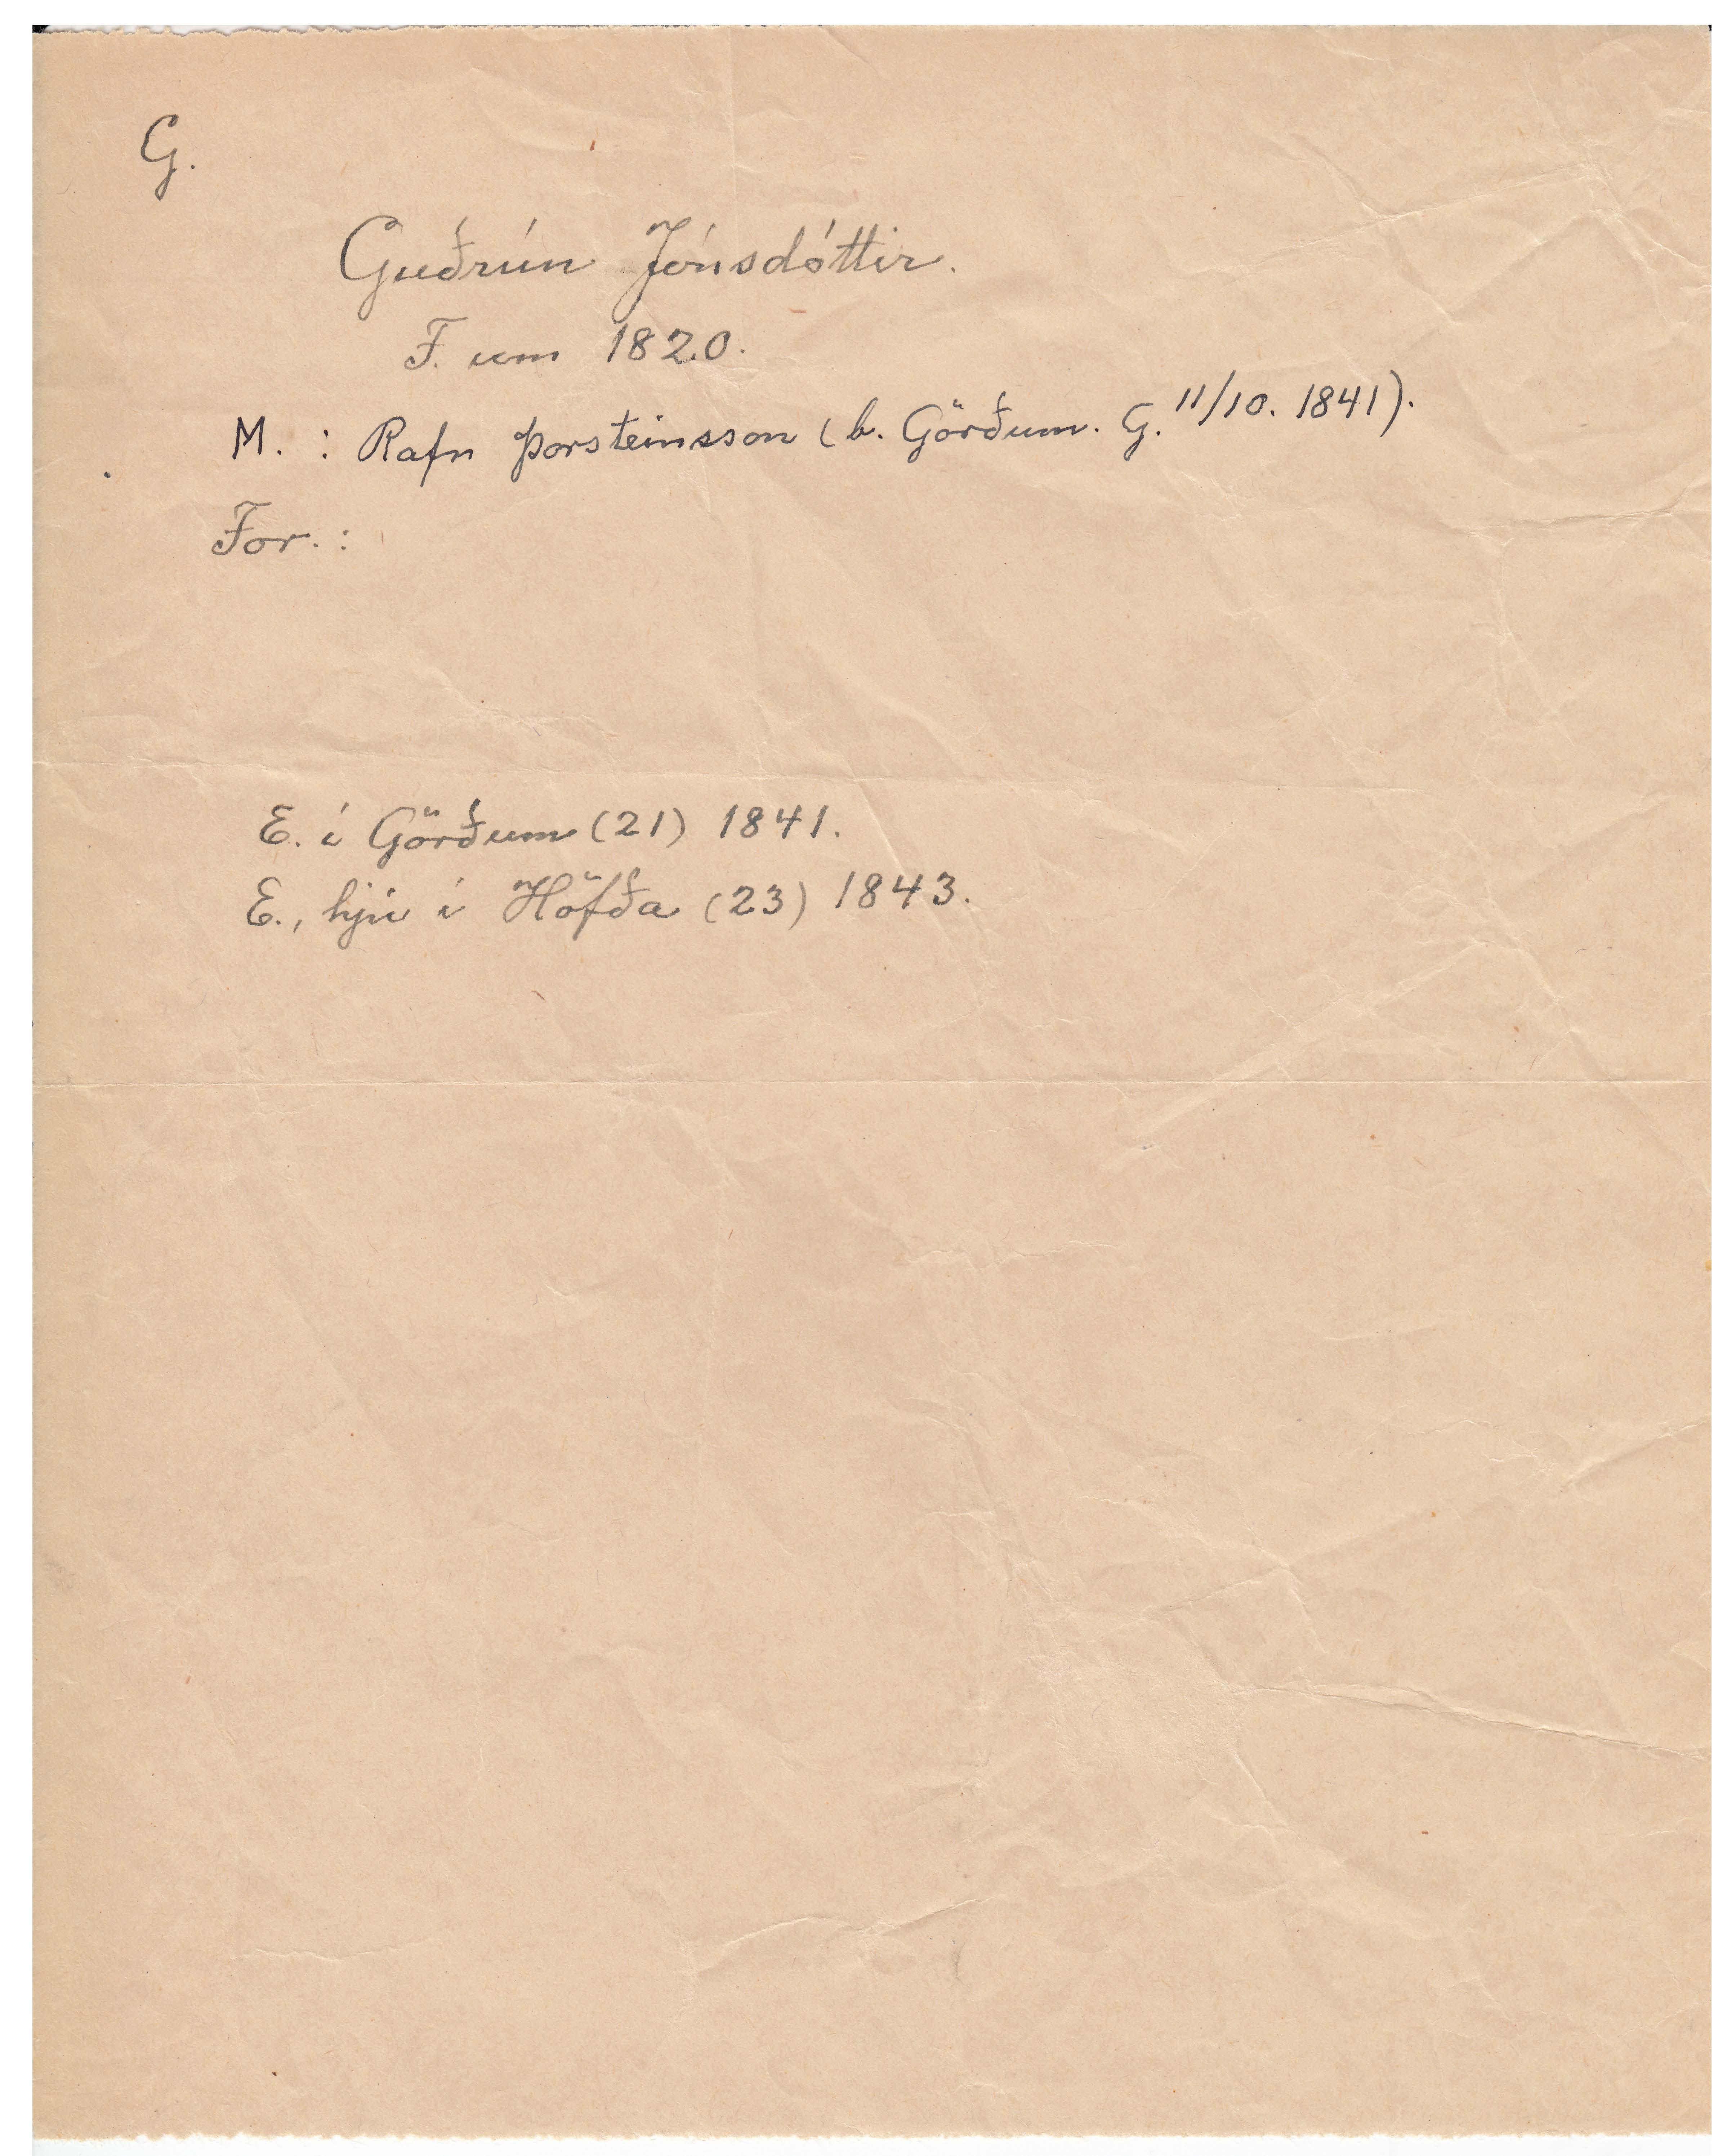 G.
Guðrún Jónsdóttir.
F. um 1820.
M. : Rafn Þorsteinsson (b. Görðum. G. 11/10. 1841).
For. :
E. í Görðum (21) 1841.
E., hjú í Höfða (23) 1843.